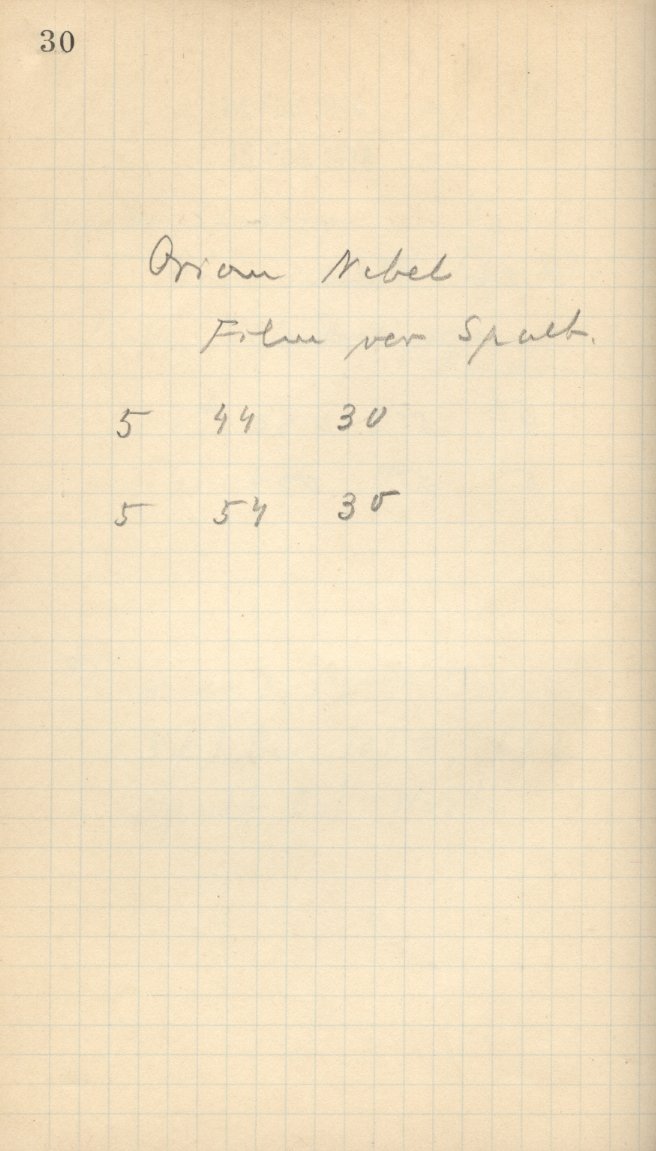 30
Orion Nebel
Film vor Spalt.
5 44 30
5 54 30